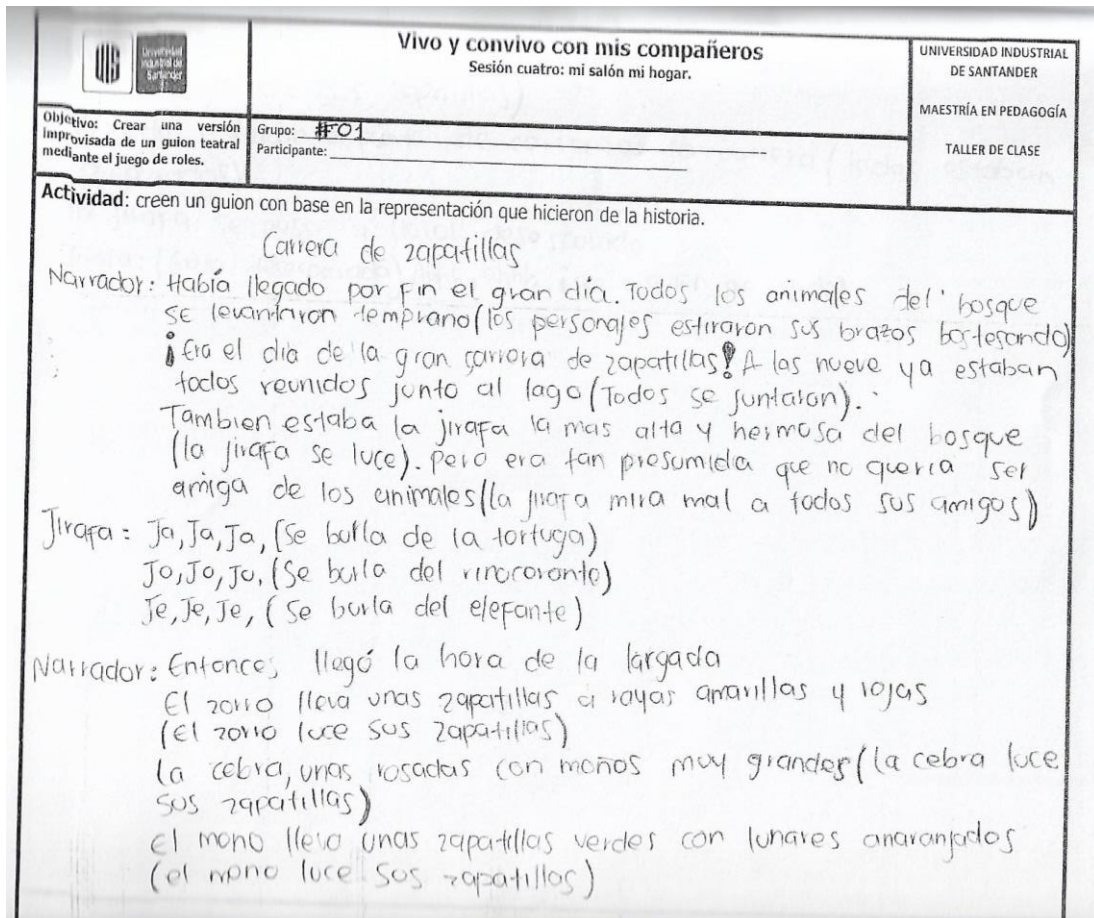 Universidad
Industrial de
Santander
Vivo y convivo con mis compañeros
Sesión cuatro: mi salón mi hogar.
UNIVERSIDAD INDUSTRIAL
DE SANTANDER
MAESTRÍA EN PEDAGOGÍA
TALLER DE CLASE
Objetivo: Crear una versión
improvisada de un guion teatral
mediante el juego de roles.
Grupo: #01
Participante:
Actividad: creen un guion con base en la representación que hicieron de la historia.
Carrera de zapatillas
Narrador: Había llegado por fin el gran día. Todos los animales del bosque
se levantaron temprano (los personajes estiraron sus brazos bostesando)
¡Era el dia de la gran carrera de zapatillas! A las nueve ya estaban
todos reunidos junto al lago (Todos se juntaron).
Tambien estaba la jirafa la mas alta y hermosa del bosque
(la jirafa se luce). pero era tan presumida que no queria ser
amiga de los animales (la jirafa mira mal a todos sus amigos)
Jirafa: Ja, Ja, Ja, (Se bulla de la tortuga)
Jo, Jo, Jo, (Se burla del rinoceronte)
Je, Je, Je, (Se burla del elefante)
Narrador: Entonces llegó la hora de la largada
El zorro lleva unas zapatillas a rayas amarillas y rojas
(El zorro luce sus zapatillas)
la cebra, unas rosadas con moños muy grandes (la cebra luce
sus zapatillas)
El mono llevo unas zapatillas verdes con lunares anaranjados
(el mono luce sus zapatillas)